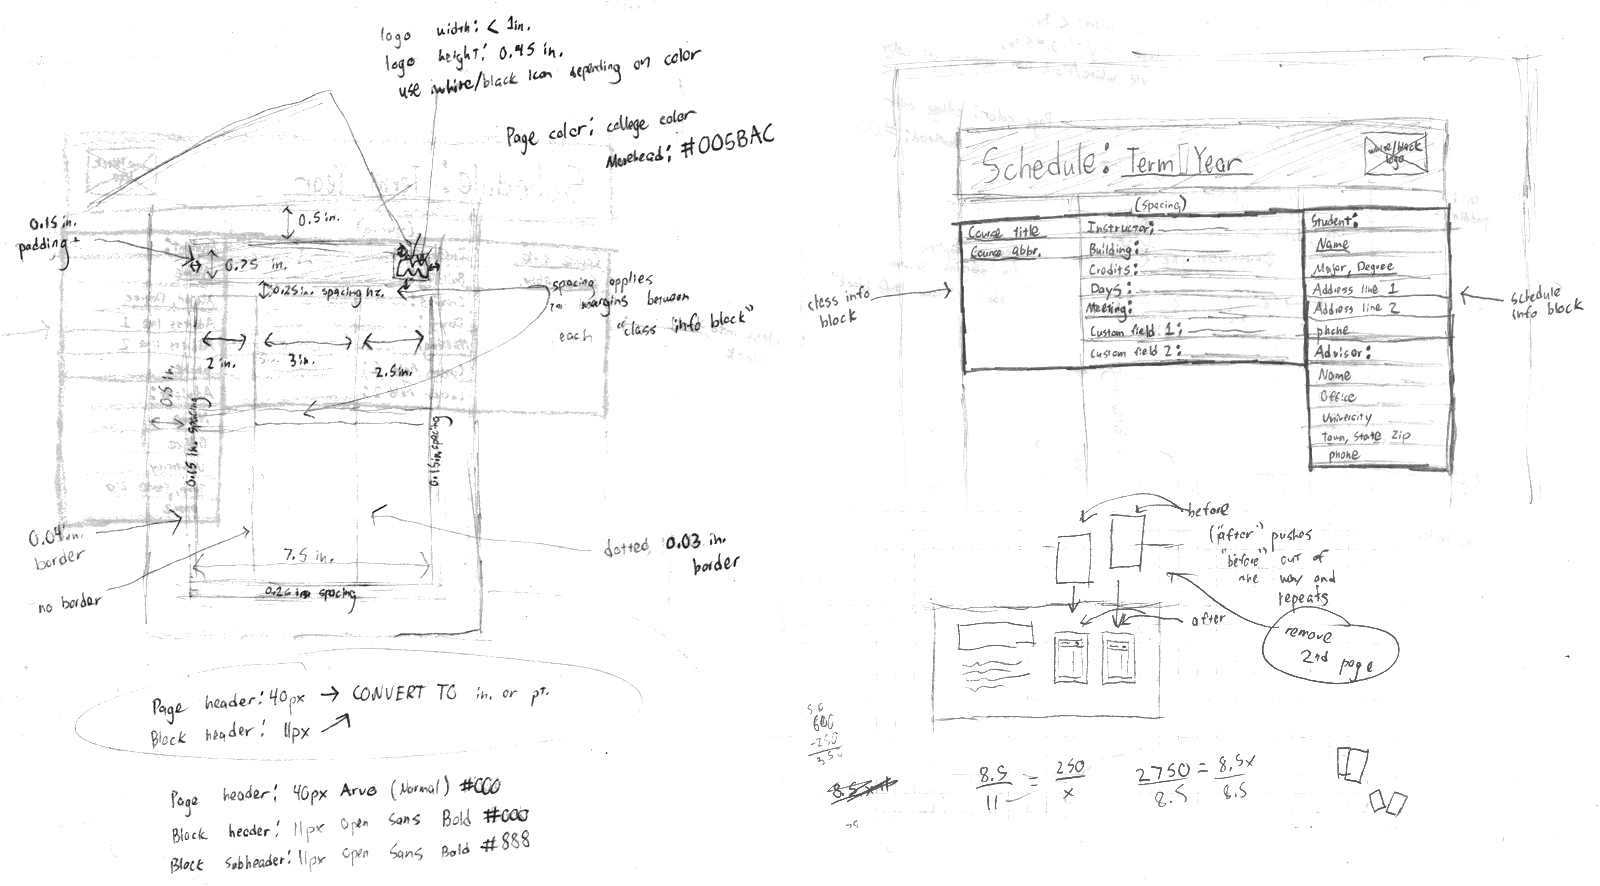 logo width: < 1in.
logo height: 0.45 in.
use white/black icon depending on color
Page color: college color
Morehead: #005BAC
0.15 in.
padding
0.5 in.
0.75 in.
0.25in. spacing hz.
spacing applies
to margins between
each "class info block"
2 in.
3 in.
2.5in.
0.5 in.
0.15 in. spacing
0.15in. spacing
0.04 in.
border
no border
7.5 in.
0.26 in. spacing
dotted, 0.03 in.
border
Page header: 40px → CONVERT TO in. or pt.
Block header: 11px
Page header: 40px Arvo (Normal) #000
Block header: 11px Open Sans Bold #000
Block subheader: 11px Open Sans Bold #888
Schedule: Term Year
white/black
logo
(spacing)
Course title
Course abbr.
Instructor:
Building:
Credits:
Days:
Meeting:
Custom field 1:
Custom field 2:
Student:
Name
Major, Degree
Address line 1
Address line 2
phone
Advisor:
Name
Office
University
Town, State Zip
phone
class info
block
schedule
info block
before
("after" pushes
"before" out of
the way and
repeats
after
remove
2nd page
600
-250
350
8.5 x 11
8.5/11 = 250/x
2750/8.5 = 8.5x/8.5